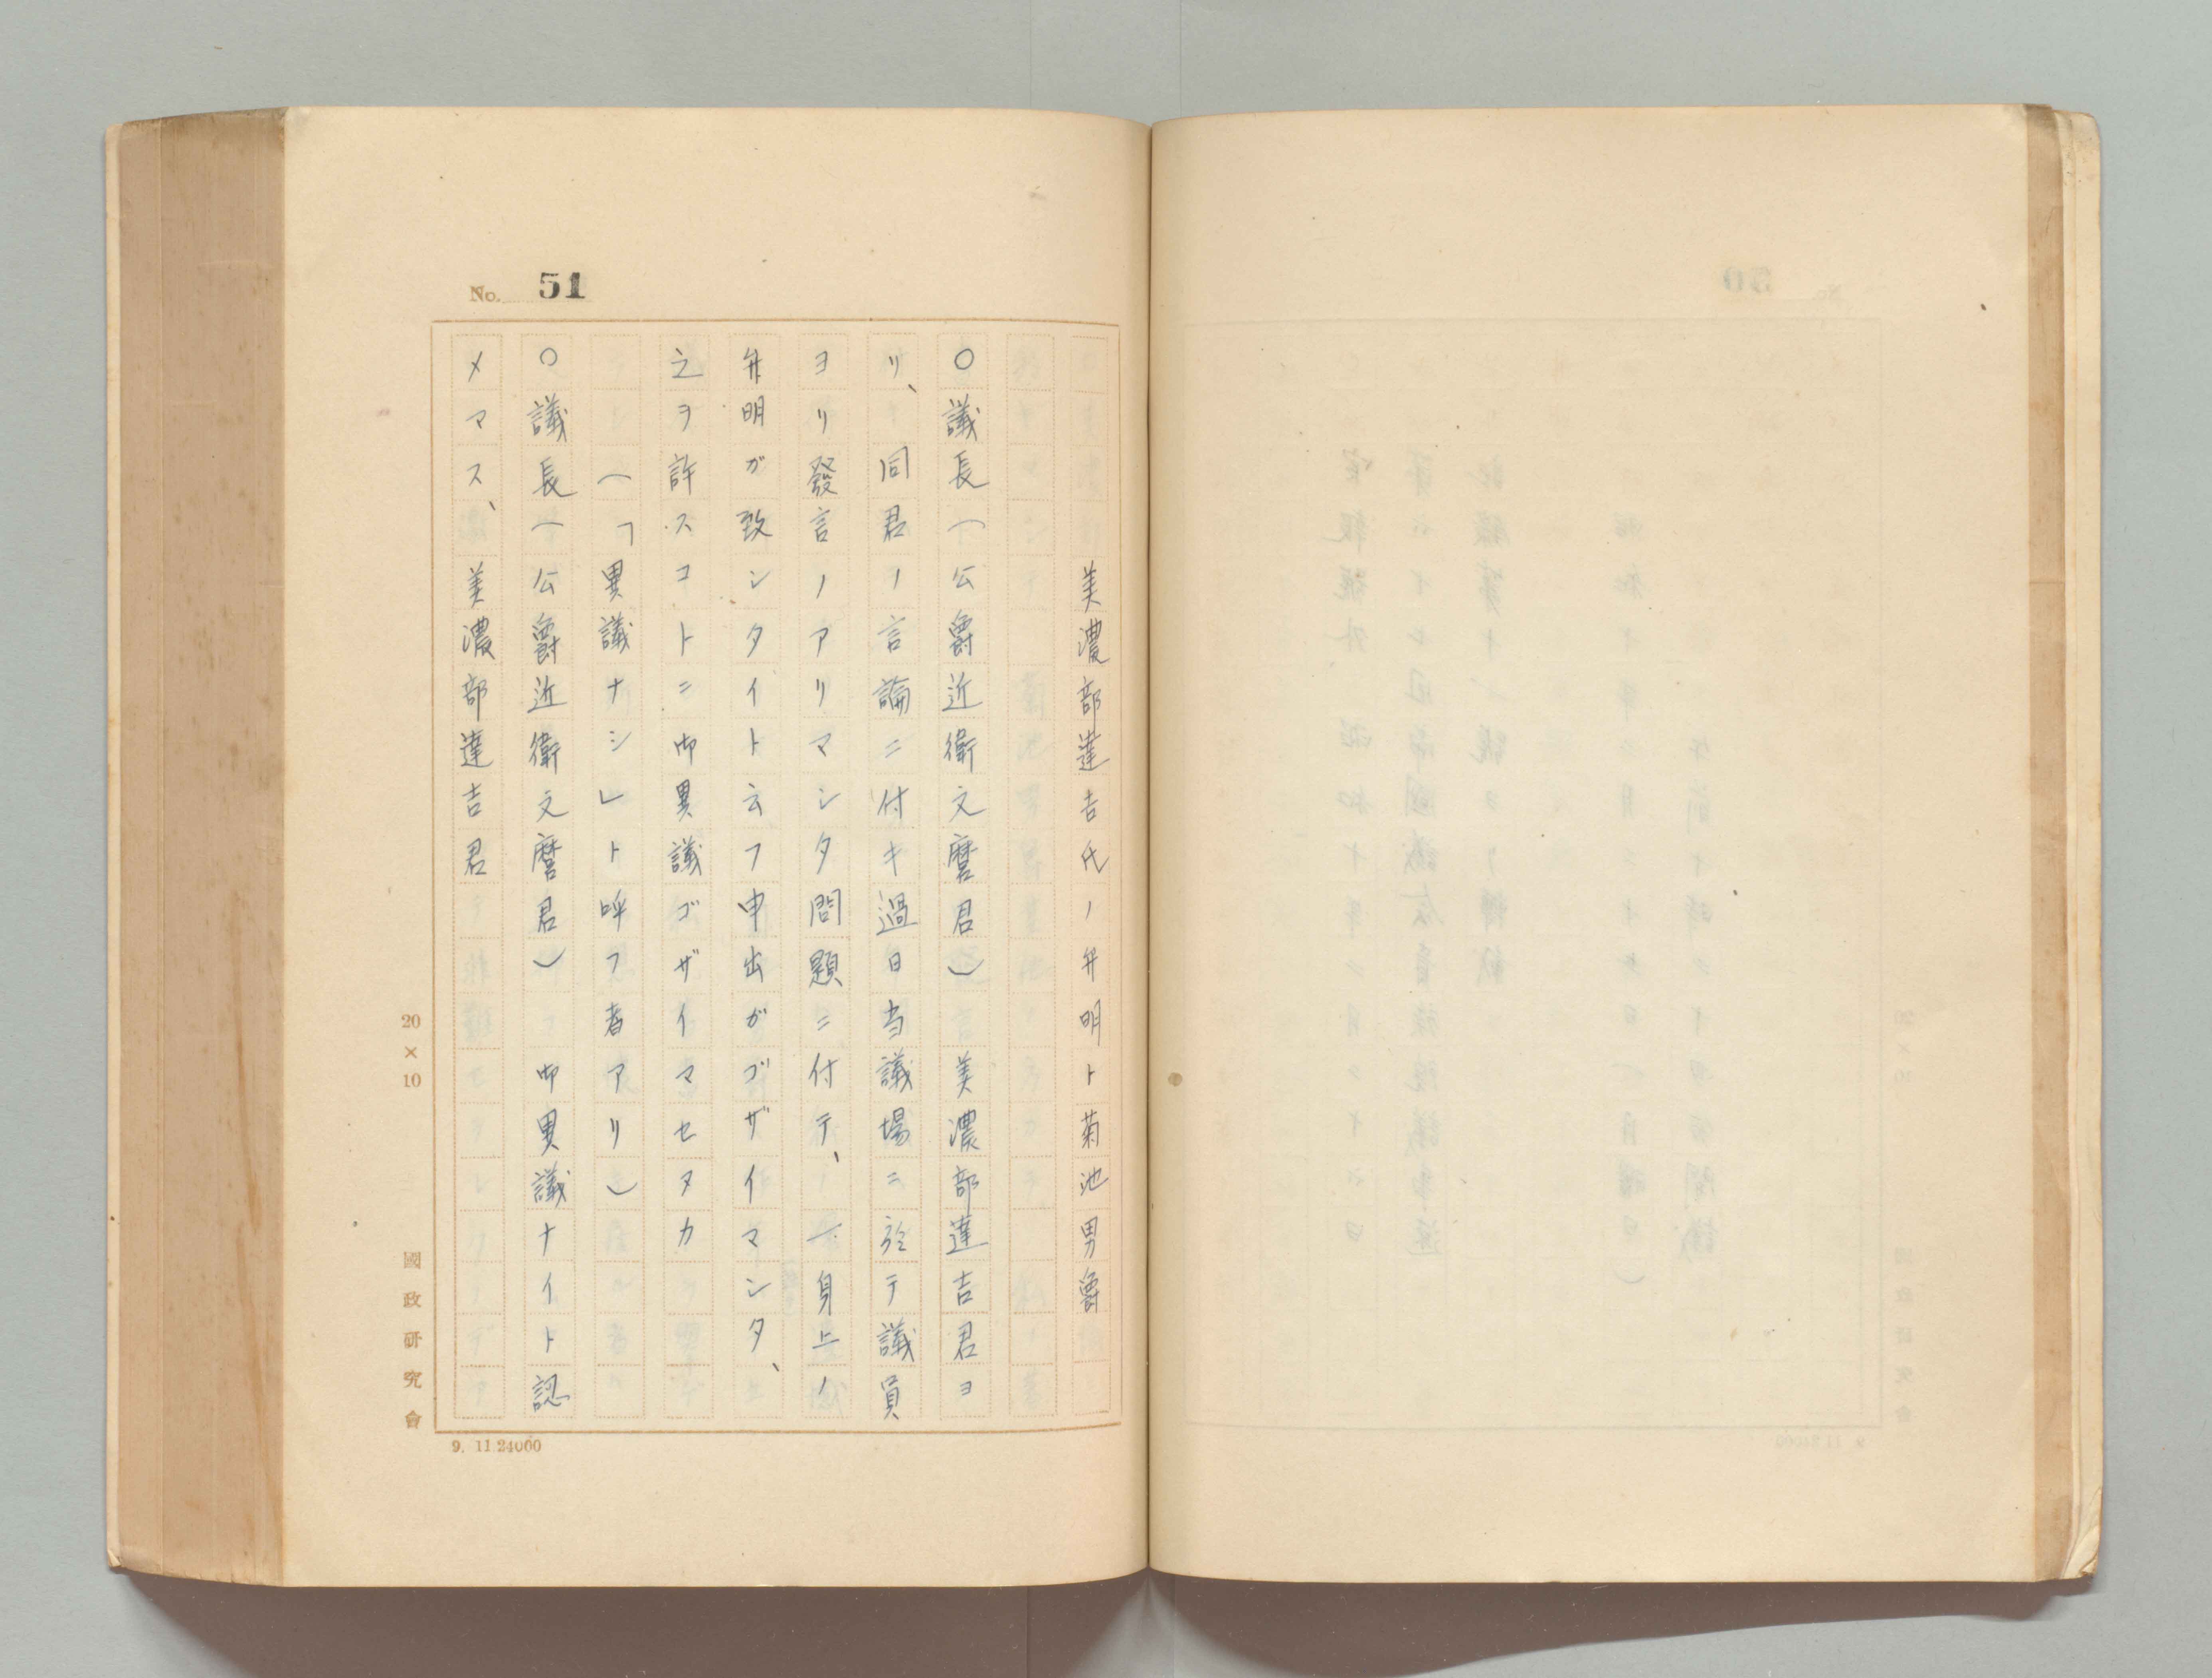 No. 51
美濃部達吉氏ノ弁明ト菊池男爵
〇議長(公爵近衛文麿君) 美濃部達吉君ヨ
リ、同君ノ言論ニ付キ過日当議場ニ於テ議員
ヨリ發言ノアリマシタ問題ニ付テ、一身上ノ
弁明ガ致シタイト云フ申出ガゴザイマシタ、
之ヲ許スコトニ御異議ゴザイマセヌカ
(「異議ナシ」ト呼フ者アリ)
〇議長(公爵近衛文麿君) 御異議ナイト認
メマス、美濃部達吉君
20×10
國政研究會
9. 11.24000